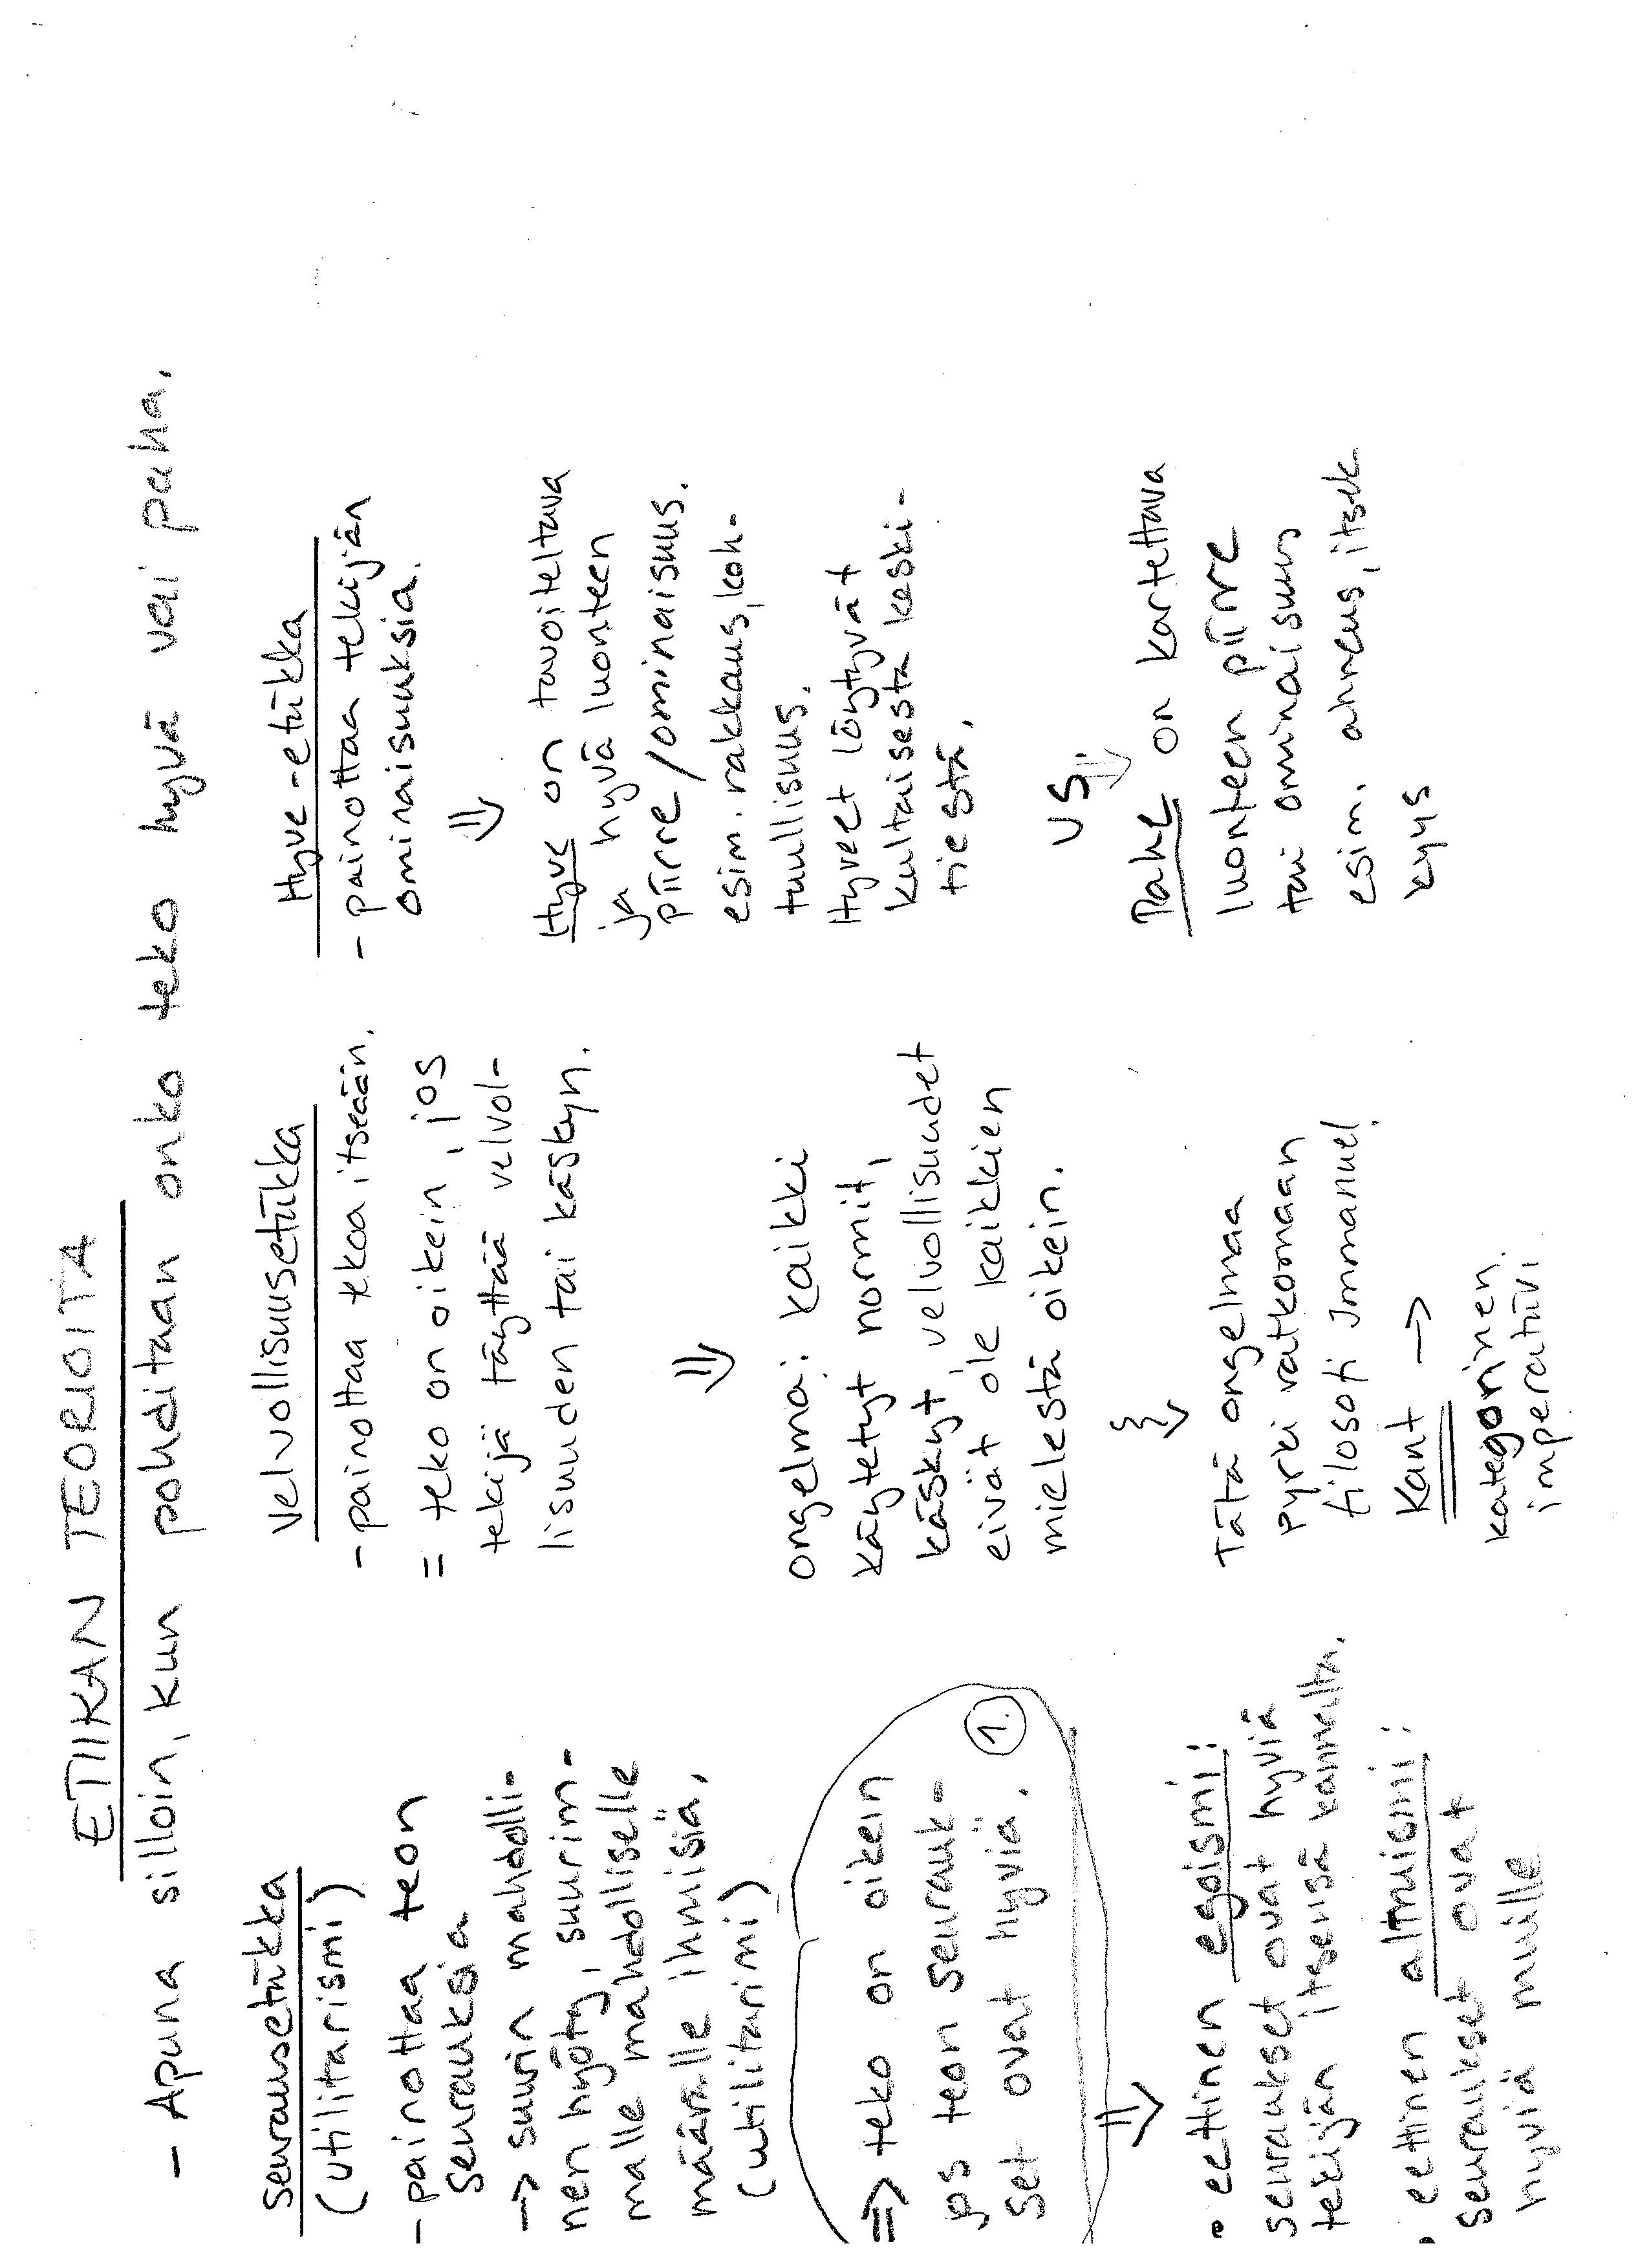 ETIIKAN TEORIOITA
- Apuna silloin, kun pohditaan onko teko hyvä vai paha.
seurausetiikka
(utilitarismi)
- painottaa teon
seurauksia
→ suurin mahdolli-
nen hyöty, suurim-
malle mahdolliselle
määrälle ihmisiä.
(utilitarimi)
⇒ teko on oikein
jos teon seurauk-
set ovat hyviä. 1.
⇓
• eettinen egoismi:
seuraukset ovat hyviä
tekijän itsensä kannalta.
• eettinen altruismi:
seuraukset ovat
hyviä muille
velvollisuusetiikka
- painottaa tekoa itseään.
= teko on oikein, jos
tekijä täyttää velvol-
lisuuden tai käskyn.
⇓
ongelma: kaikki
käytetyt normit,
käskyt, velvollisuudet
eivät ole kaikkien
mielestä oikein.
Tätä ongelmaa
pyrki ratkomaan
filosofi Immanuel
Kant →
kategorinen
imperatiivi
Hyve-etiikka
- painottaa tekijän
ominaisuuksia.
⇓
Hyve on tavoiteltava
ja hyvä luonteen
piirre/ominaisuus.
esim. rakkaus, koh-
tuullisuus.
Hyveet löytyvät
kultaisesta keski-
tiestä.
VS.
⇓
Pahe on kartettava
luonteen piirre
tai ominaisuus
esim. ahneus, itsek
kyys